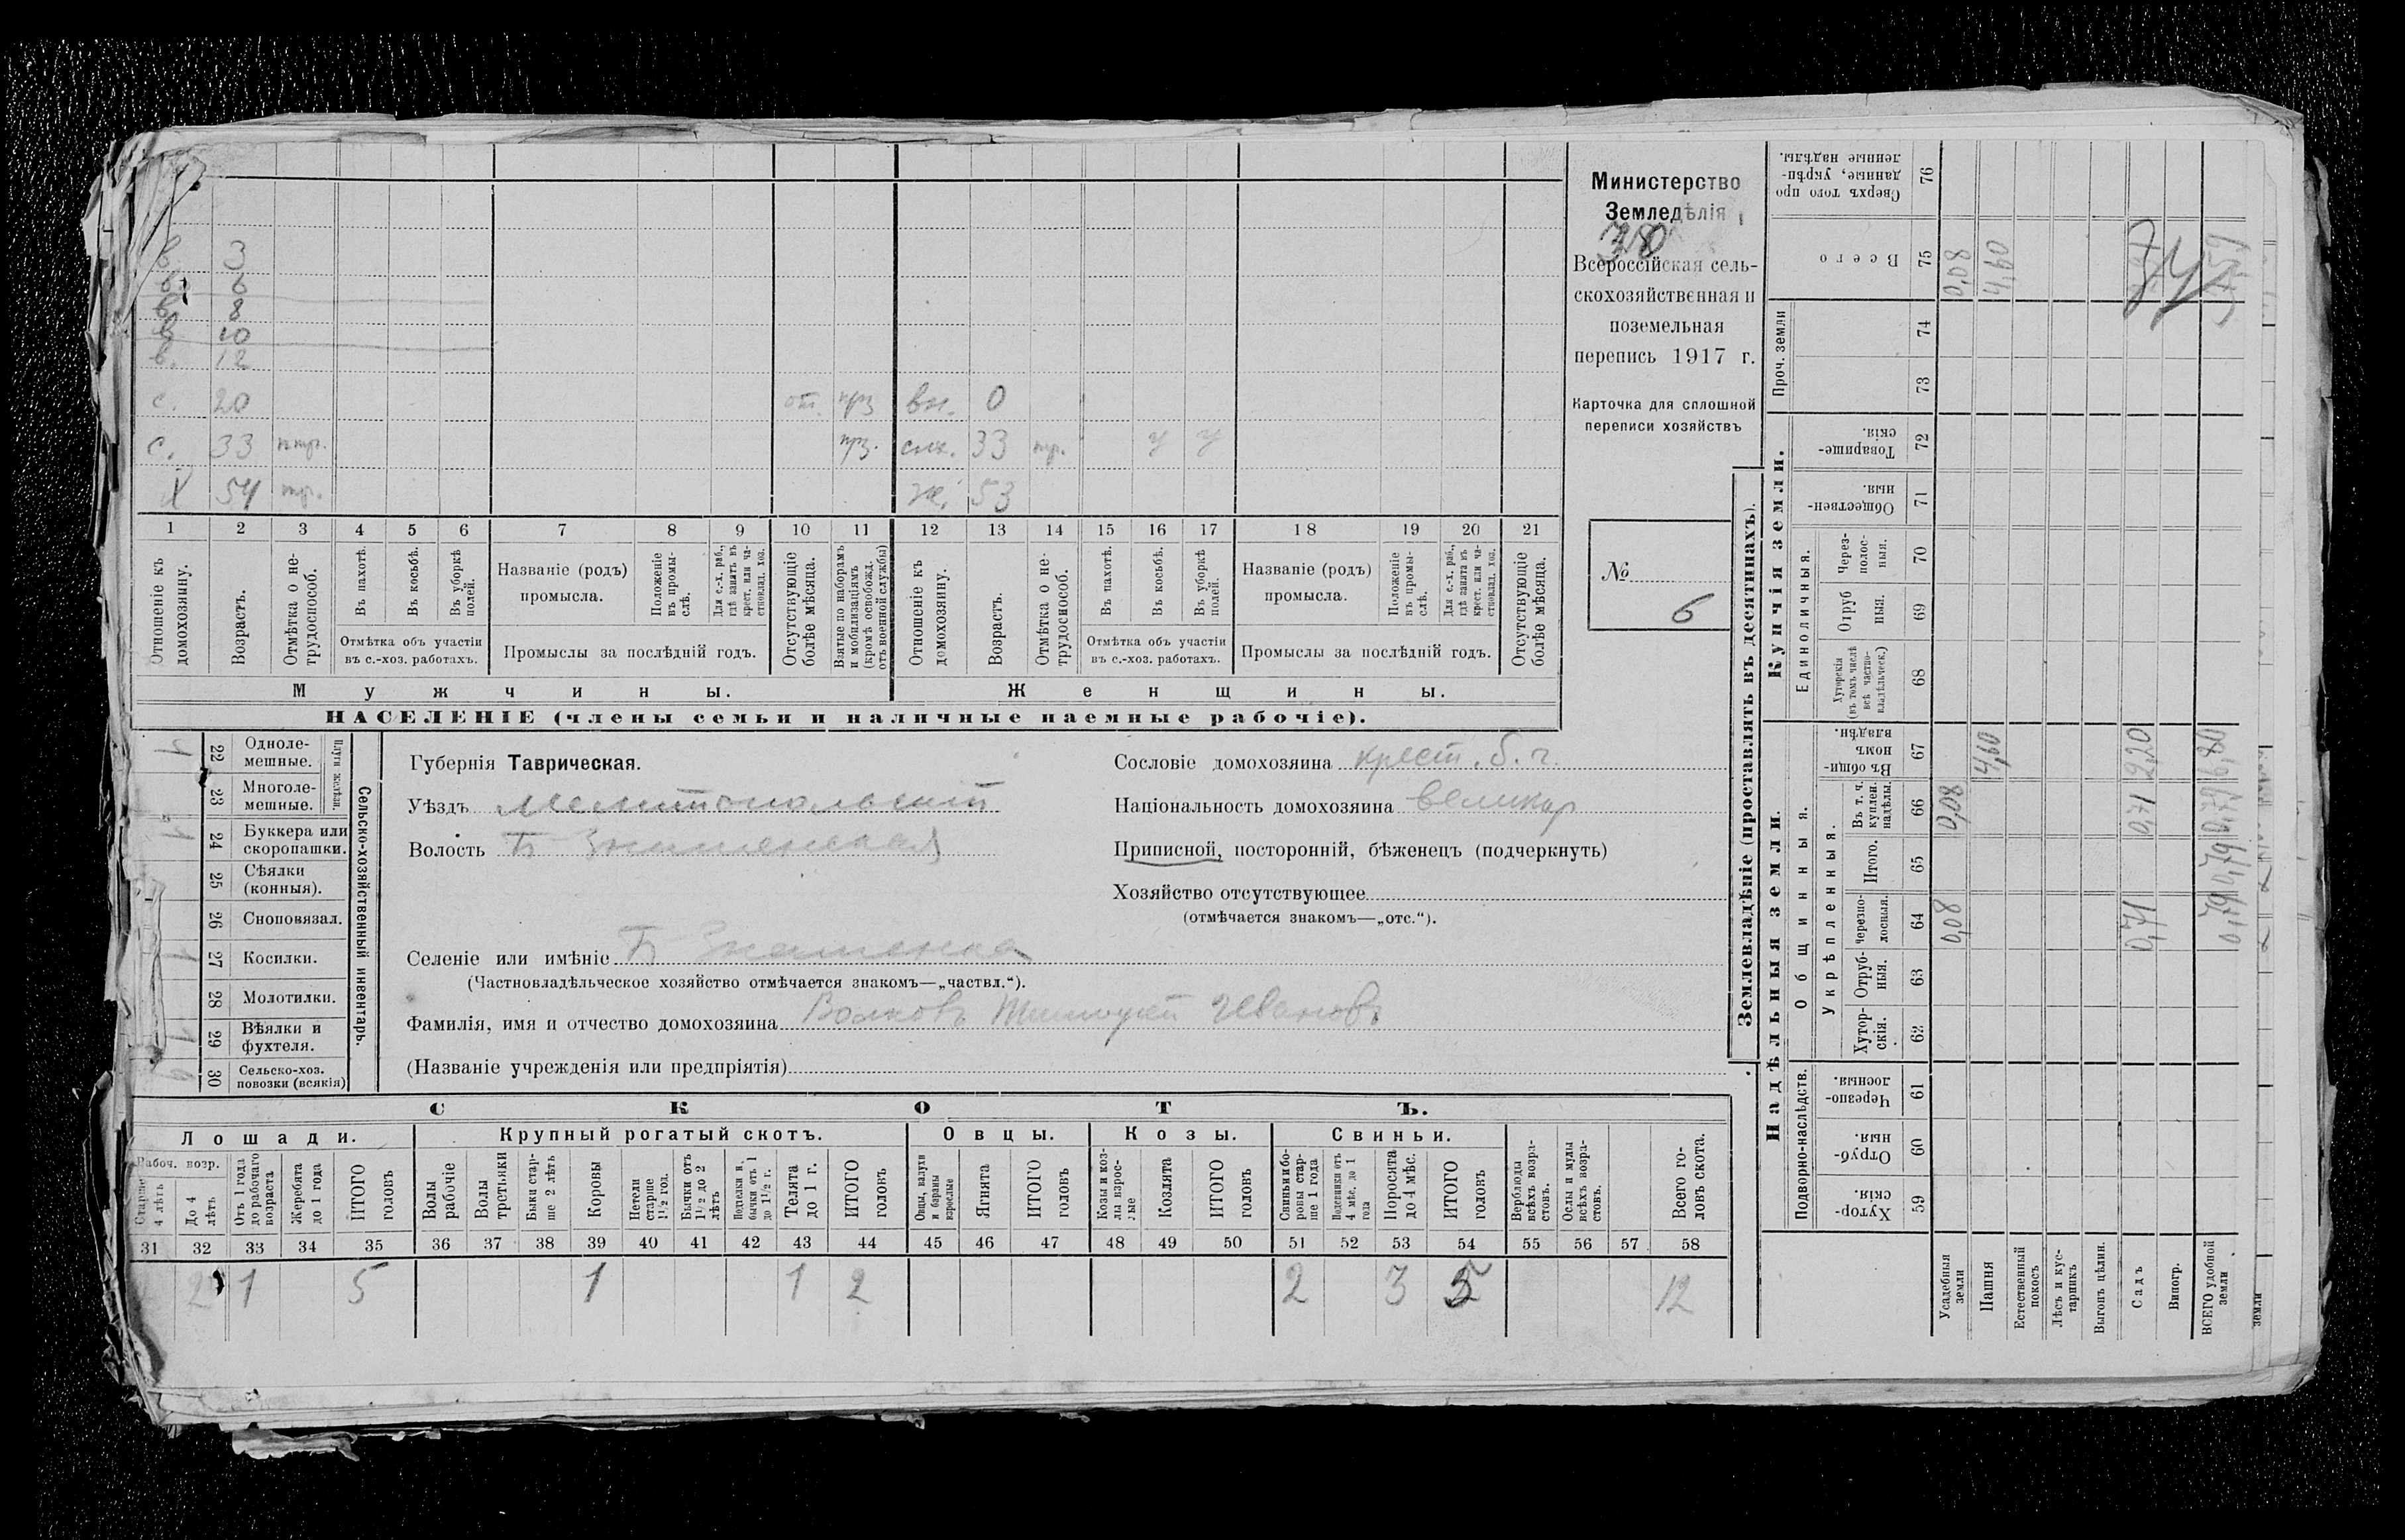 в. 3
в. 6
в. 8
в 10
в. 12
с. 20 от. прз вн. 0
с. 33 прз. снх. 33 тр. у у
Х 54 ж. 53
1 2 3 4 5 6 7 8 9 10 11 12 13 14 15 16 17 18 19 20 21
Отношеніе къ домохозяину.
Возрастъ.
Отмѣтка о нетрудоспособ.
Въ пахотѣ.
Въ косьбѣ.
Въ уборкѣ полей.
Отмѣтка объ участіи
въ с.-хоз. работахъ.
Названіе (родъ)
промысла.
Положеніе въ промыслѣ.
Для с.-х. раб., гдѣ занятъ въ крест. или частновлад. хоз.
Промыслы за послѣдній годъ.
Отсутствующіе болѣе мѣсяца.
Взятые по наборамъ и мобилизаціямъ (кромѣ освобожд. отъ военной службы)
Отношеніе къ домохозяину.
Возрастъ.
Отмѣтка о нетрудоспособ.
Въ пахотѣ.
Въ косьбѣ.
Въ уборкѣ полей.
Отмѣтка объ участіи
въ с.-хоз. работахъ.
Названіе (родъ)
промысла.
Положеніе въ промыслѣ.
Для с.-х. раб., гдѣ занята въ крест. или частновлад. хоз.
Промыслы за послѣдній годъ.
Отсутствующіе болѣе мѣсяца.
Мужчины.
Женщины.
НАСЕЛЕНІЕ (члены семьи и наличные наемные рабочіе).
Министерство
Земледѣлія
38
Всероссійская сель-
скохозяйственная и
поземельная
перепись 1917 г.
Карточка для сплошной
переписи хозяйствъ
№
6
Сельско-хозяйственный инвентарь.
Плуги желѣзн.
1 22 Одноле-
мешные.
23 Многоле-
мешные.
1 24 Буккера или
скоропашки.
25 Сѣялки
(конныя).
26 Сноповязал.
1 27 Косилки.
28 Молотилки.
1 29 Вѣялки и
фухтеля.
30 Сельско-хоз.
повозки (всякія)
Губернія Таврическая.
Уѣздъ Мелитопольскій
Волость Б Знаменская
Селеніе или имѣніе Б Знаменка
(Частновладѣльческое хозяйство отмѣчается знакомъ—„частвл.“).
Фамилія, имя и отчество домохозяина Волковъ Тимофей Ивановъ
(Названіе учрежденія или предпріятія)
Сословіе домохозяина крест. б. г.
Національность домохозяина великор
Приписной, посторонній, бѣженецъ (подчеркнуть)
Хозяйство отсутствующее
(отмѣчается знакомъ—„отс.“).
СКОТЪ.
Лошади.
Крупный рогатый скотъ.
Овцы.
Козы.
Свиньи.
Рабоч. возр.
Старше 4 лѣтъ
До 4 лѣтъ
Отъ 1 года до рабочаго возраста
Жеребята до 1 года
ИТОГО головъ
Волы рабочіе
Волы третьяки
Быки старше 2 лѣтъ
Коровы
Нетели старше 1½ год.
Бычки отъ 1½ до 2 лѣтъ
Подтелки и бычки отъ 1 до 1½ г.
Телята до 1 г.
ИТОГО головъ
Овцы, валухи и бараны взрослые
Ягнята
ИТОГО головъ
Козы и козлы взрослые
Козлята
ИТОГО головъ
Свиньи и боровы старше 1 года
Подсвинки отъ 4 мѣс. до 1 года
Поросята до 4 мѣс.
ИТОГО головъ
Верблюды всѣхъ возрастовъ.
Ослы и мулы всѣхъ возрастовъ.
Всего головъ скота.
31 32 33 34 35 36 37 38 39 40 41 42 43 44 45 46 47 48 49 50 51 52 53 54 55 56 57 58
2 1 5 1 1 2 2 3 5 12
Землевладѣніе (проставлять въ десятинахъ).
Надѣльныя земли.
Купчія земли.
Проч. земли
Подворно-наслѣдств.
Общинныя.
Укрѣпленныя.
Единоличныя.
Хуторскія. 59
Отрубныя. 60
Черезполосныя. 61
Хуторскія. 62
Отрубныя. 63
Черезполосныя. 64
Итого. 65
Въ т. ч. куплен. надѣлы. 66
Въ общиномъ владѣн. 67
Хуторскія (въ томъ числѣ всѣ частновладѣльческ.) 68
Отрубныя. 69
Черезполосныя. 70
Общественныя. 71
Товарищескія. 72
73
74
Всего 75
Сверхъ того проданные, укрѣпленные надѣлы. 76
Усадебныя земли 0,08 0,08 0,08
Пашня 4,60 4,60
Естественный покосъ
Лѣсъ и кустарникъ
Выгонъ цѣлин.
Садъ 0,71 0,71 2,20
Виногр.
ВСЕГО удобной земли 0,79 0,79 0,79 6,80 7,59
земли